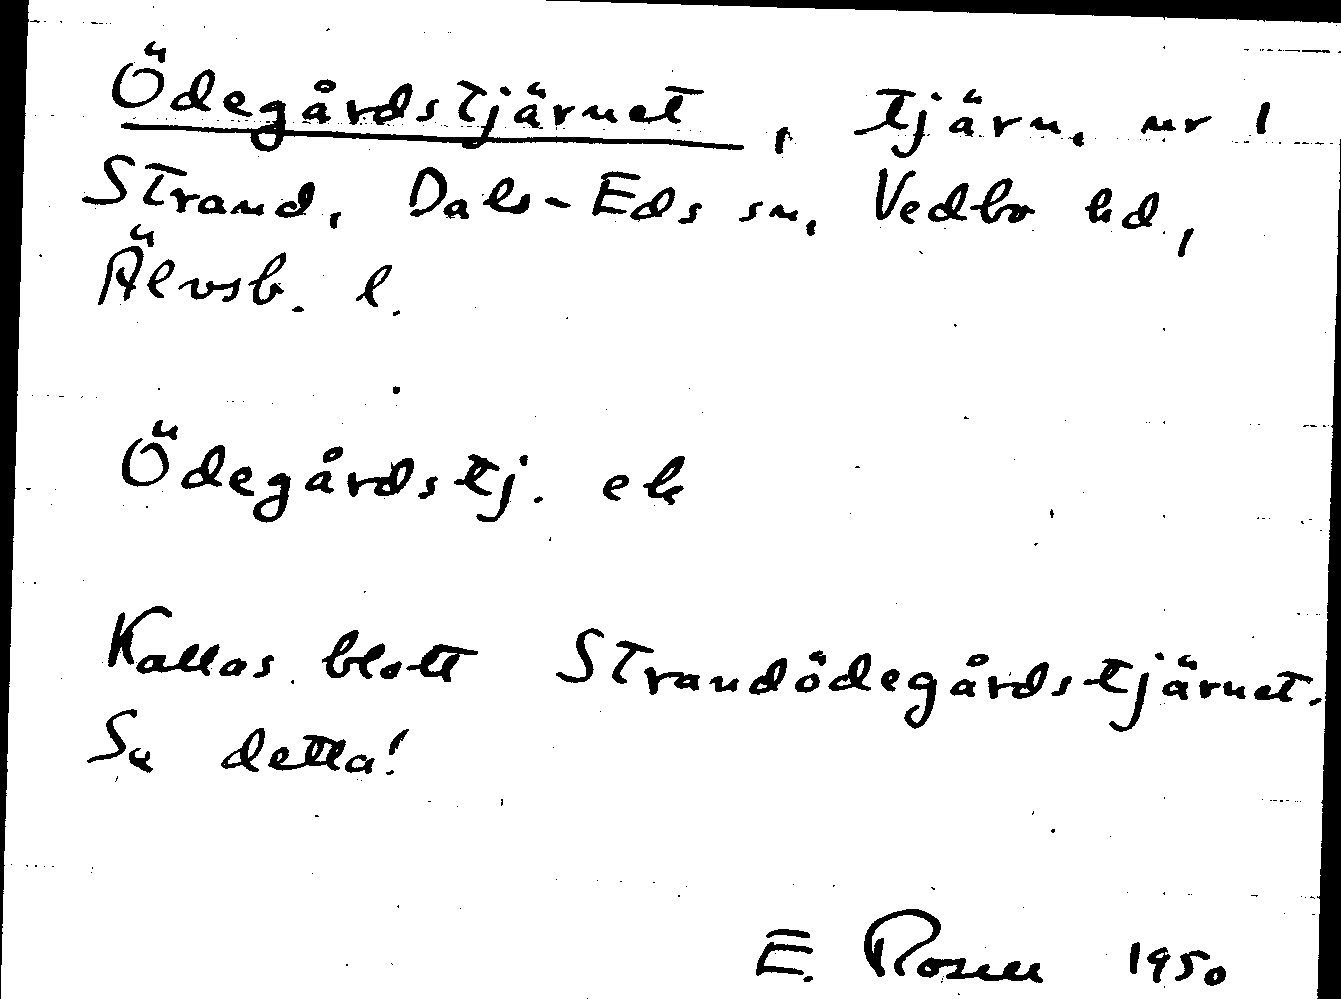 Ödegårdstjärnet, tjärn, nr 1
Strand, Dals-Eds sn, Vedbo hd,
Älvsb. l.
Ödegårdstj. ek
Kallas blott Strandödegårdstjärnet.
Se detta!
E. Rosell 1950